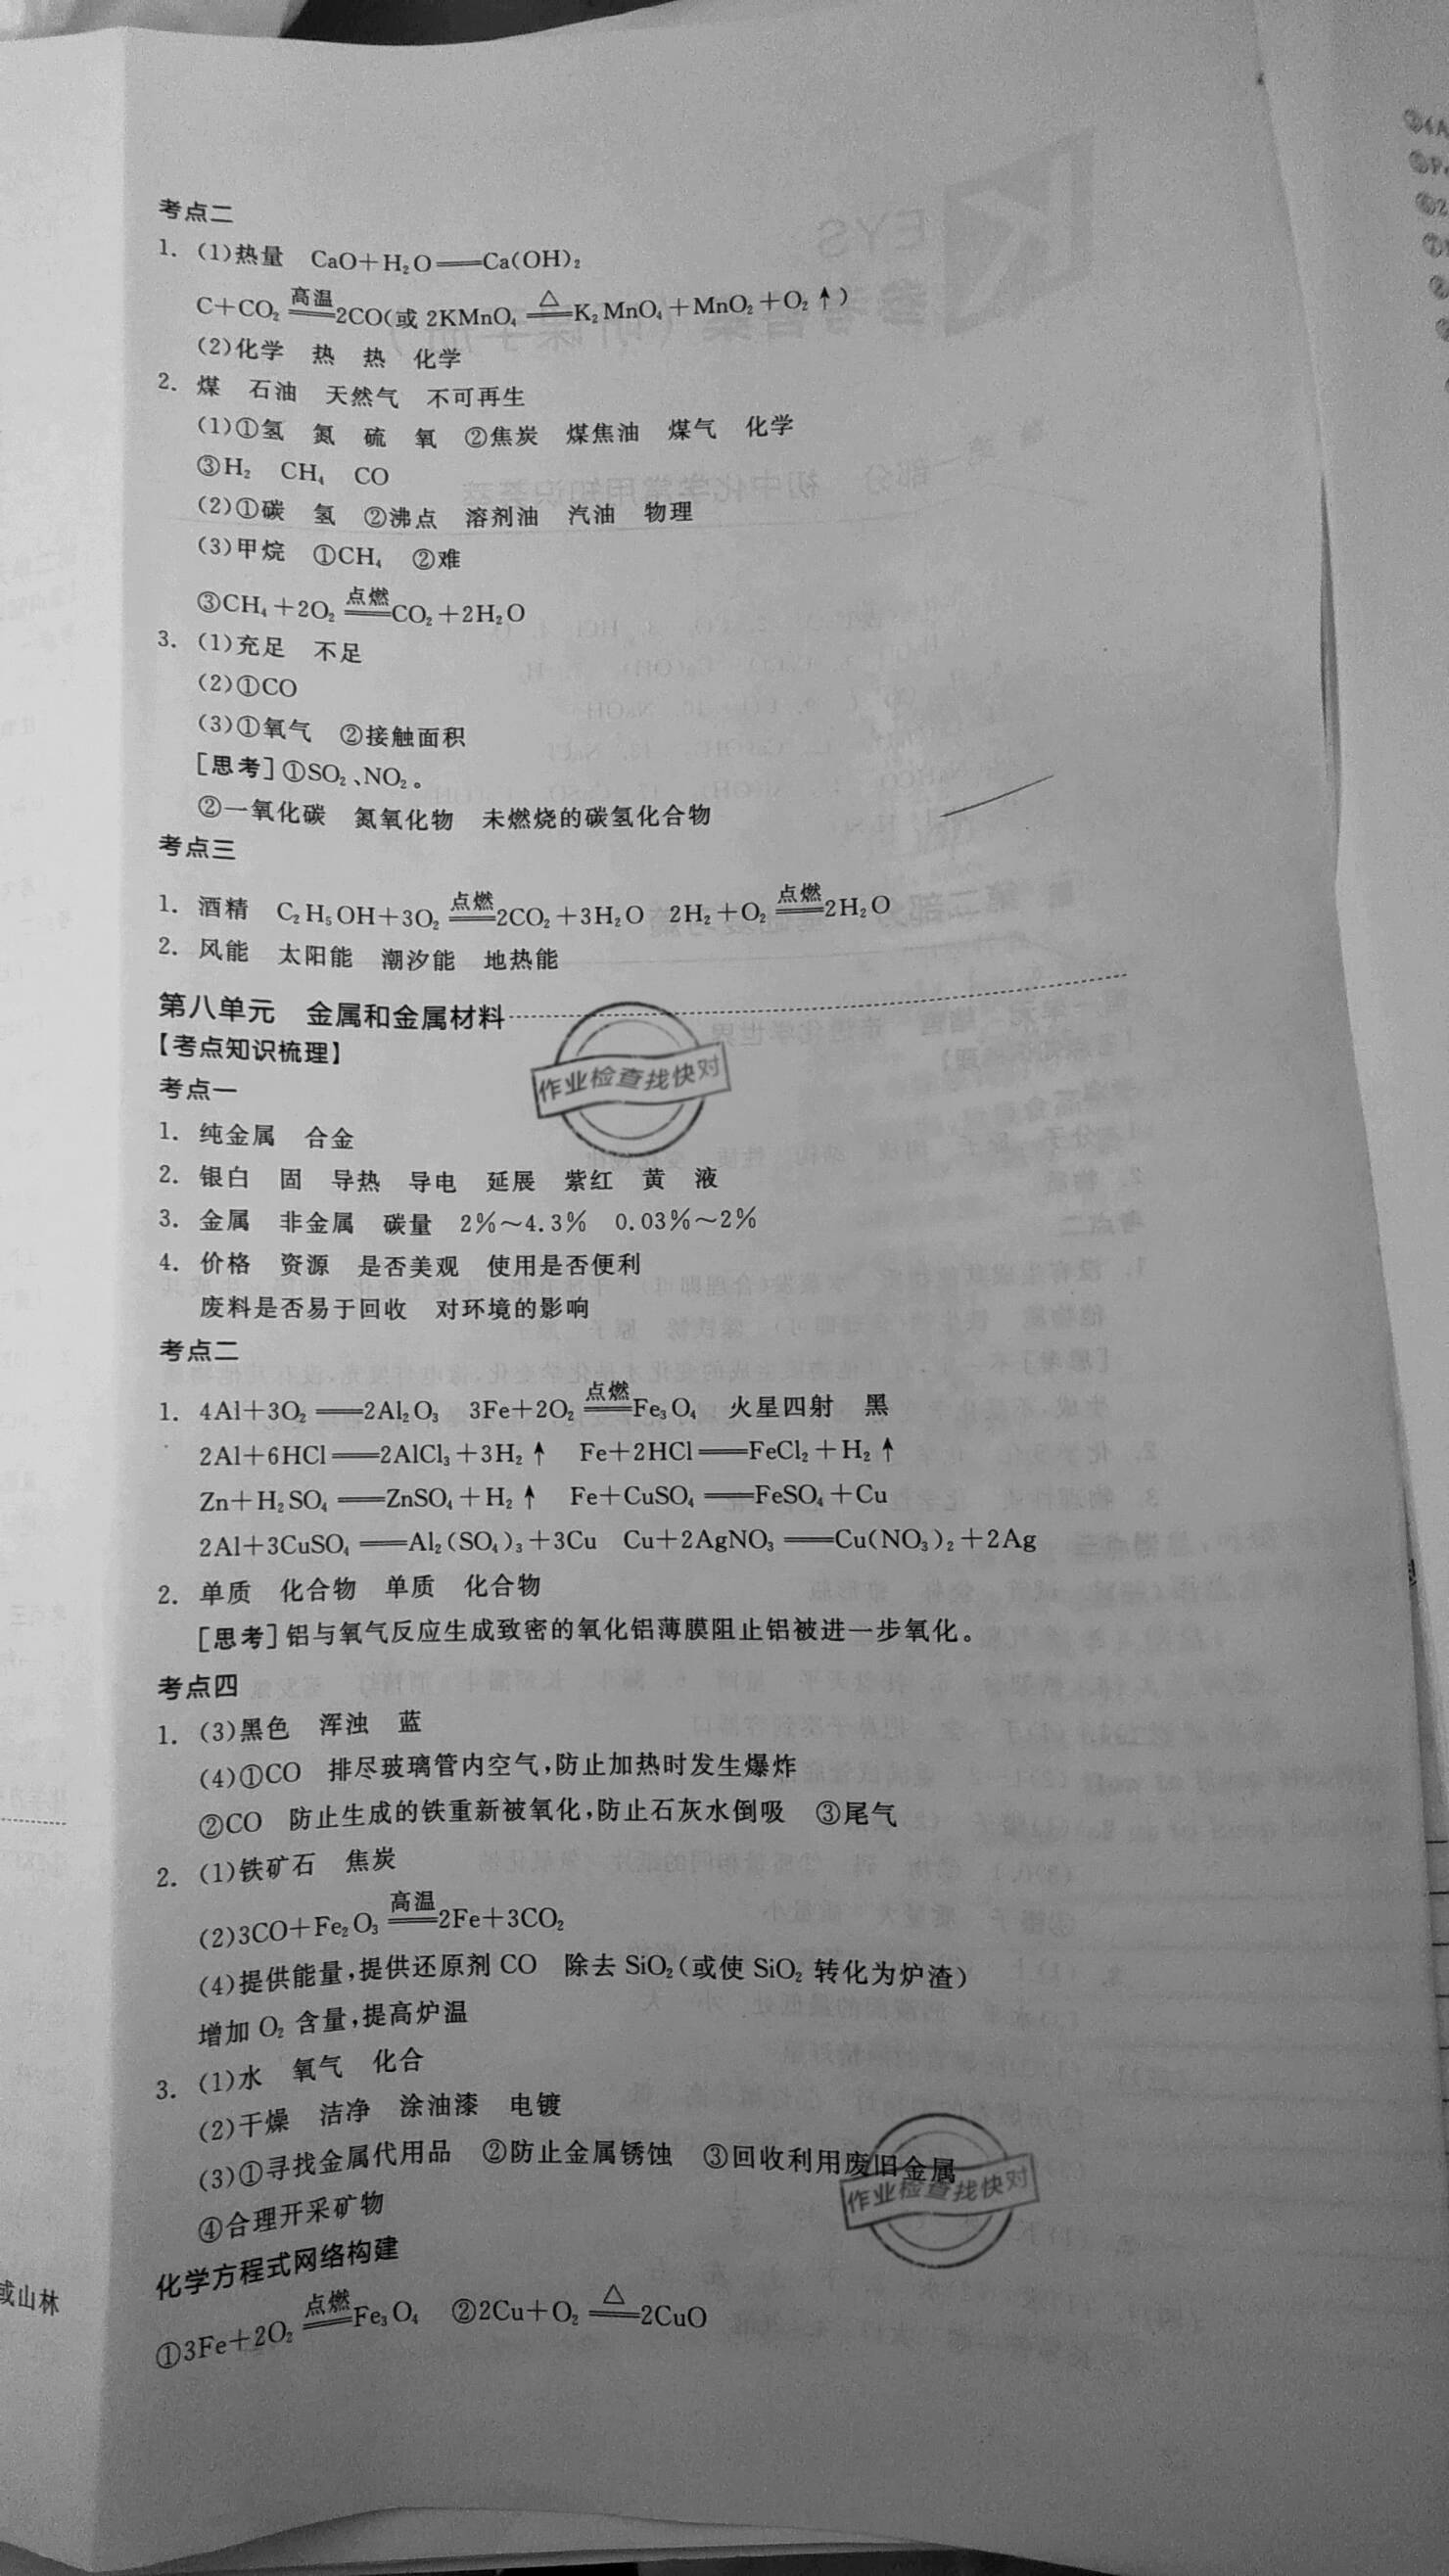 考点二
1. (1)热量 CaO+H₂O══Ca(OH)₂
C+CO₂ 高温══ 2CO(或 2KMnO₄ △══ K₂MnO₄+MnO₂+O₂↑)
(2)化学 热 热 化学
2. 煤 石油 天然气 不可再生
(1)①氢 氮 硫 氧 ②焦炭 煤焦油 煤气 化学
③H₂ CH₄ CO
(2)①碳 氢 ②沸点 溶剂油 汽油 物理
(3)甲烷 ①CH₄ ②难
③CH₄+2O₂ 点燃══ CO₂+2H₂O
3. (1)充足 不足
(2)①CO
(3)①氧气 ②接触面积
[思考]①SO₂、NO₂。
②一氧化碳 氮氧化物 未燃烧的碳氢化合物
考点三
1. 酒精 C₂H₅OH+3O₂ 点燃══ 2CO₂+3H₂O 2H₂+O₂ 点燃══ 2H₂O
2. 风能 太阳能 潮汐能 地热能
第八单元 金属和金属材料
【考点知识梳理】
作业检查找快对
考点一
1. 纯金属 合金
2. 银白 固 导热 导电 延展 紫红 黄 液
3. 金属 非金属 碳量 2%～4.3% 0.03%～2%
4. 价格 资源 是否美观 使用是否便利
废料是否易于回收 对环境的影响
考点二
1. 4Al+3O₂══2Al₂O₃ 3Fe+2O₂ 点燃══ Fe₃O₄ 火星四射 黑
2Al+6HCl══2AlCl₃+3H₂↑ Fe+2HCl══FeCl₂+H₂↑
Zn+H₂SO₄══ZnSO₄+H₂↑ Fe+CuSO₄══FeSO₄+Cu
2Al+3CuSO₄══Al₂(SO₄)₃+3Cu Cu+2AgNO₃══Cu(NO₃)₂+2Ag
2. 单质 化合物 单质 化合物
[思考]铝与氧气反应生成致密的氧化铝薄膜阻止铝被进一步氧化。
考点四
1. (3)黑色 浑浊 蓝
(4)①CO 排尽玻璃管内空气,防止加热时发生爆炸
②CO 防止生成的铁重新被氧化,防止石灰水倒吸 ③尾气
2. (1)铁矿石 焦炭
(2)3CO+Fe₂O₃ 高温══ 2Fe+3CO₂
(4)提供能量,提供还原剂 CO 除去 SiO₂(或使 SiO₂ 转化为炉渣)
增加 O₂ 含量,提高炉温
3. (1)水 氧气 化合
(2)干燥 洁净 涂油漆 电镀
(3)①寻找金属代用品 ②防止金属锈蚀 ③回收利用废旧金属
作业检查找快对
④合理开采矿物
化学方程式网络构建
①3Fe+2O₂ 点燃══ Fe₃O₄ ②2Cu+O₂ △══ 2CuO
或山林